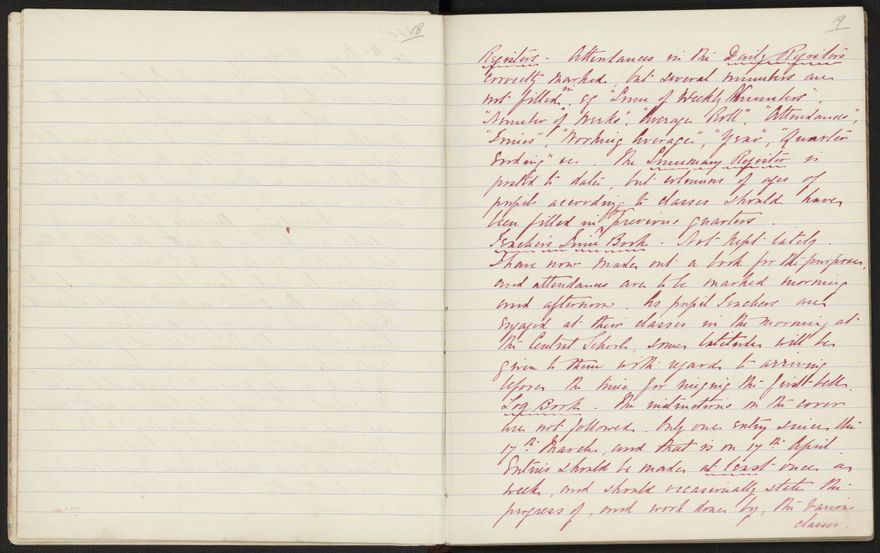 18
19
Registers. Attendances in the Daily Registers
correctly marked, but several numbers are
not filled in, eg "Sum of Weekly Numbers",
"Number of Weeks", "Average Roll", "Attendances",
"Times", "Working Average", "Year", "Quarter
Ending" &c. The Summary Register is
posted to date, but columns of ages of
pupils according to classes should have
been filled in for previous quarters.
Teachers Time Book. Not kept lately.
I have now made out a book for the purpose,
and attendances are to be marked morning
and afternoon. As pupil Teachers are
engaged at their classes in the morning at
the Central School, some latitude will be
given to them with regard to arriving
before the time for ringing the first bell.
Log Book. The instructions on the cover
are not followed. Only one entry since the
17th March, and that is on 17th April.
Entries should be made at least once a
week, and should occasionally state the
progress of, and work done by, the various
classes.